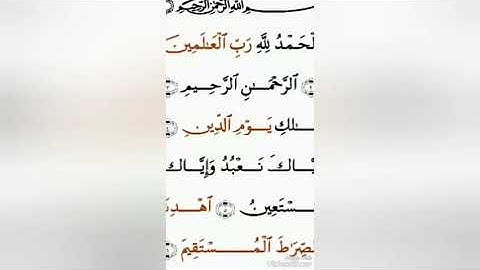 بِسْمِ ٱللَّهِ ٱلرَّحْمَٰنِ ٱلرَّحِيمِ
لْحَمْدُ لِلَّهِ رَبِّ ٱلْعَٰلَمِينَ
ٱلرَّحْمَٰنِ ٱلرَّحِيمِ
مَٰلِكِ يَوْمِ ٱلدِّينِ
يَّاكَ نَعْبُدُ وَإِيَّاكَ
سْتَعِينُ ٥ ٱهْدِنَ
لصِّرَٰطَ ٱلْمُسْتَقِيمَ